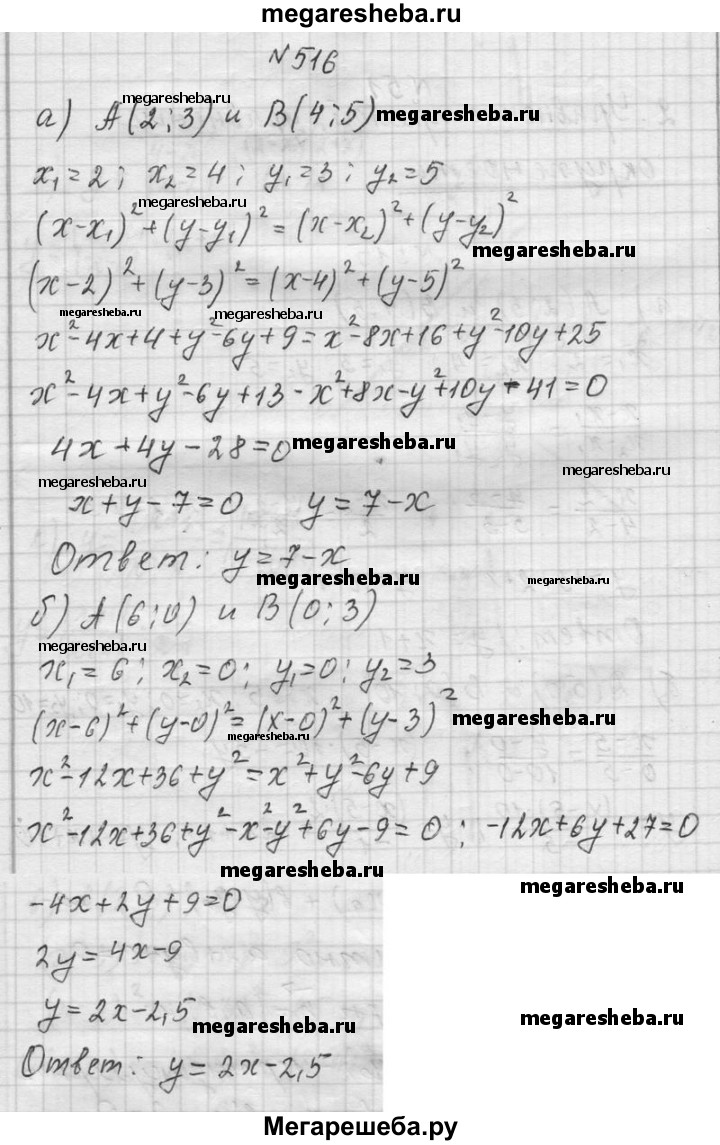 megaresheba.ru
№516
megaresheba.ru
а) А(2;3) и В(4;5) megaresheba.ru
x₁=2; x₂=4; y₁=3; y₂=5
megaresheba.ru
(x-x₁)²+(y-y₁)²=(x-x₂)²+(y-y₂)²
megaresheba.ru
(x-2)²+(y-3)²=(x-4)²+(y-5)²
megaresheba.ru megaresheba.ru
x²-4x+4+y²-6y+9=x²-8x+16+y²-10y+25
x²-4x+y²-6y+13-x²+8x-y²+10y-41=0
4x+4y-28=0 megaresheba.ru
megaresheba.ru megaresheba.ru
x+y-7=0 y=7-x
Ответ: y=7-x
megaresheba.ru megaresheba.ru
б) А(6;0) и В(0;3)
megaresheba.ru
x₁=6; x₂=0; y₁=0; y₂=3
(x-6)²+(y-0)²=(x-0)²+(y-3)² megaresheba.ru
megaresheba.ru
x²-12x+36+y²=x²+y²-6y+9
x²-12x+36+y²-x²-y²+6y-9=0; -12x+6y+27=0
megaresheba.ru megaresheba.ru
-4x+2y+9=0
2y=4x-9
y=2x-2,5
megaresheba.ru megaresheba.ru
Ответ: y=2x-2,5
Мегарешеба.ру